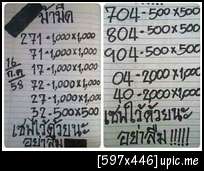 น้ำมืด
16
ก.ค
58
271-1,000x1,000
71-1,000x1,000
17-1,000x1,000
72-1,000x1,000
27-1,000x1,000
32-500x500
เซฟไว้ด้วยนะ
อย่าลืม
704-500x500
804-500x500
904-500x500
04-2,000x1,000
40-2,000x1,000
เซฟไว้ด้วยนะ
อย่าลืม!!!!!
[597x446] upic.me